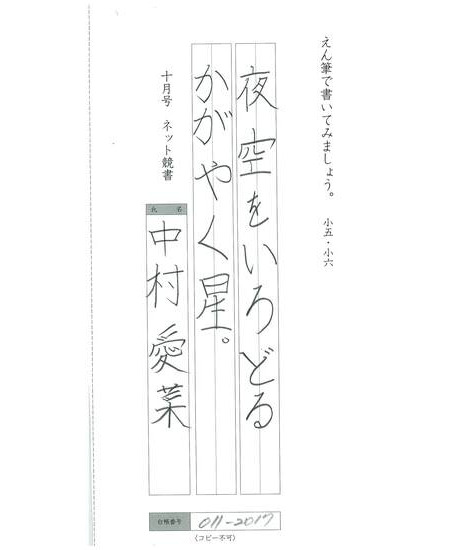 えん筆で書いてみましょう。 小五・小六
夜空をいろどる
かがやく星。
十月号 ネット競書
氏 名
中村愛菜
台帳番号 011-2017
(コピー不可)